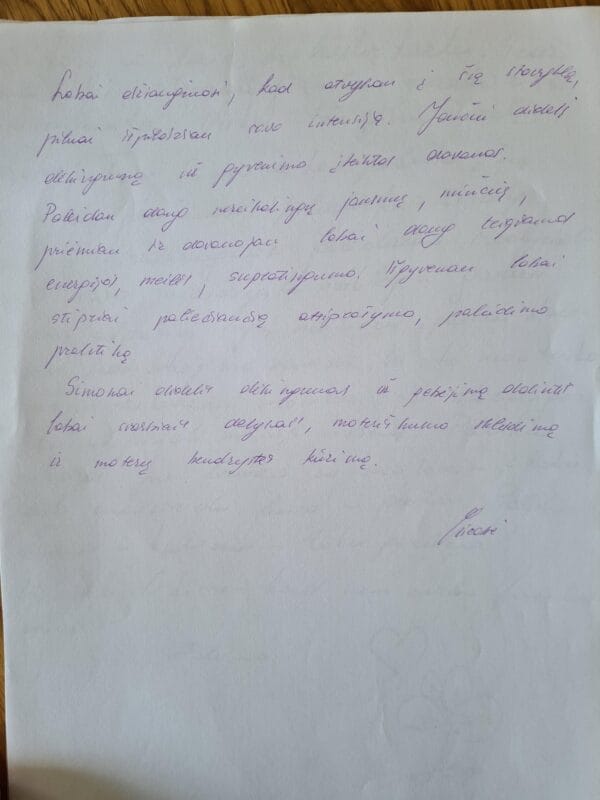 Labai džiaugiuosi, kad atvykau į šią stovyklą,
pilnai išpildžiau savo intensiją. Jaučiu didelį
dėkingumą už gyvenimo įteiktas dovanas.
Paleidau daug nereikalingų jausmų, minčių,
priėmiau ir dovanojau labai daug teigiamos
energijos, meilės, supratingumo. Išgyvenau labai
stipriai paliečiančią atsiprašymo, paleidimo
praktiką
Simonai didelis dėkingumas už gebėjimą dalintis
labai svarbiais dalykais, moteriškumo skleidimą
ir moterų bendrystės kūrimą.